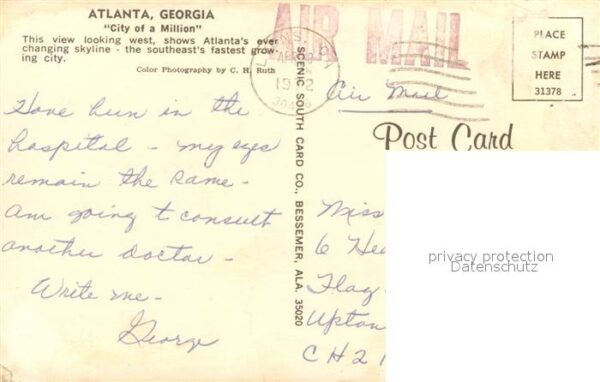 ATLANTA, GEORGIA
"City of a Million"
This view looking west, shows Atlanta's ever
changing skyline - the southeast's fastest grow-
ing city.
Color Photography by C. H. Ruth
Have been in the
hospital - my eyes
remain the same -
am going to consult
another doctor -
Write me -
George
SCENIC SOUTH CARD CO., BESSEMER, ALA. 35020
AIR MAIL
Air Mail
PLACE
STAMP
HERE
31378
Post Card
Miss
6
Flag
Upton
CH21
privacy protection
Datenschutz